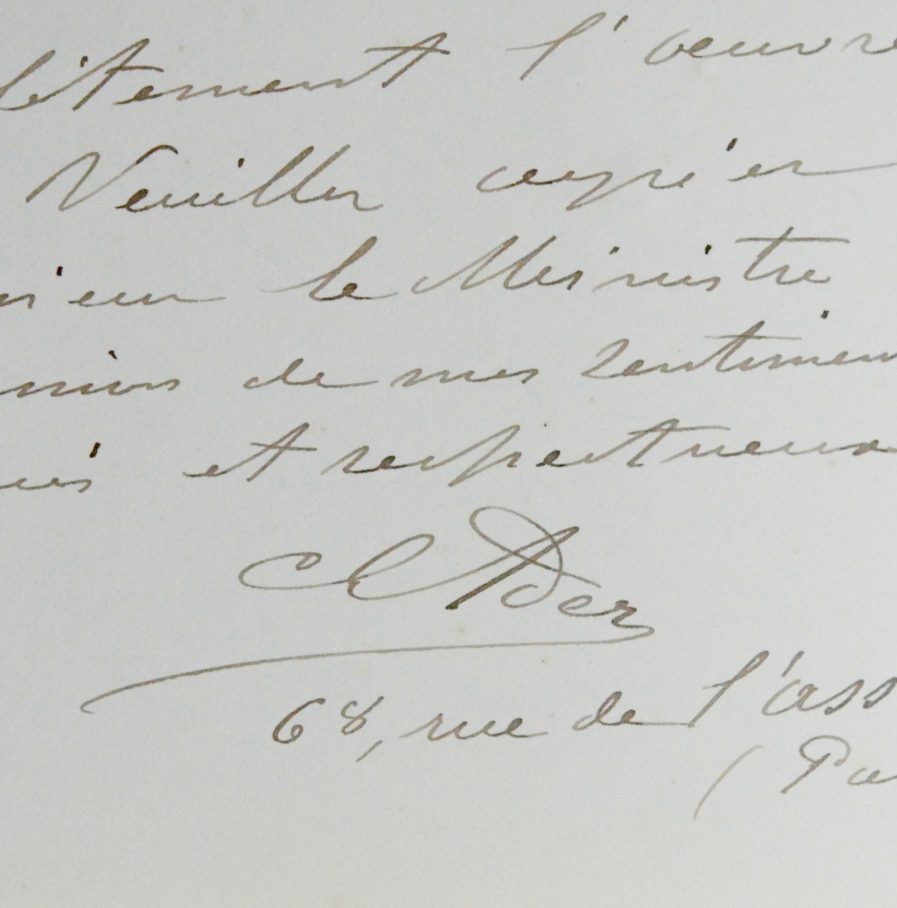 plètement l'œuvre
Veuillez agréer
sieur le Ministre
ession de mes sentimen
ués et respectueux
C Ader
68, rue de l'ass
(Pa